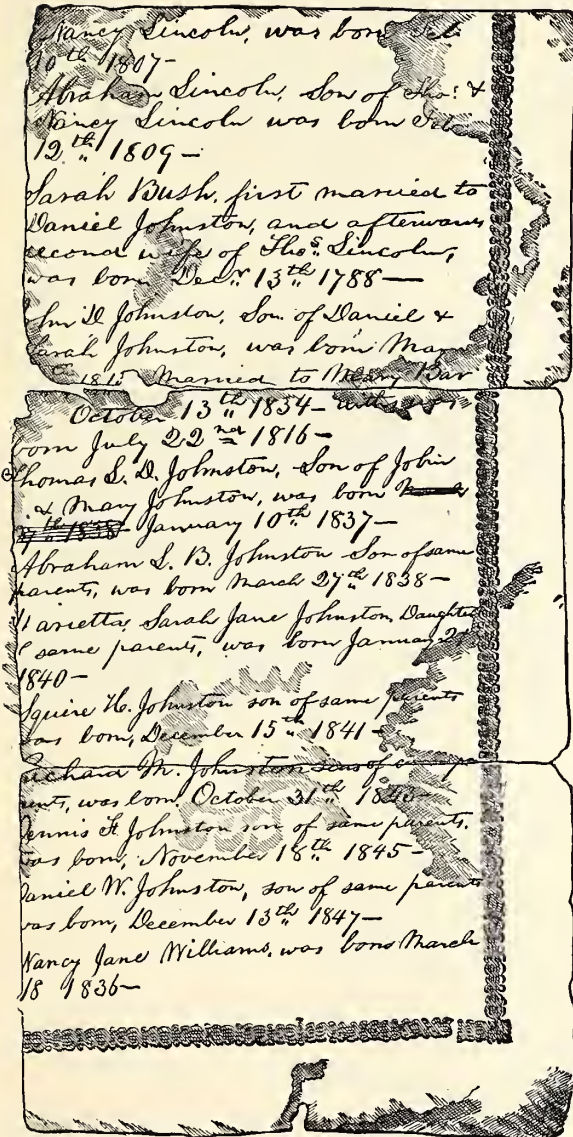 Nancy Lincoln, was born Feb
10th 1807—
Abraham Lincoln, Son of Thos. &
Nancy Lincoln was born Feb
12th 1809—
Sarah Bush, first married to
Daniel Johnston, and afterwards
second wife of Thos. Lincoln,
was born Decr. 13th 1788—
ohn D Johnston, Son of Daniel &
Sarah Johnston, was born May
Married to Meary Bar
October 13th 1834— who was
born July 22nd 1816—
Thomas L. D. Johnston, Son of John
. & Mary Johnston, was born
January 10th 1837—
Abraham L. B. Johnston Son of same
parents, was born March 27th 1838—
arietta, Sarah Jane Johnston, Daughter
f same parents, was born January 21
1840—
Squire H. Johnston son of same parents
was born, December 15th 1841—
Richard M. Johnston son of pa
ents, was born October 31th 1843—
Dennis F. Johnston son of same parents.
was born, November 18th 1845—
Daniel W. Johnston, son of same parents
was born, December 13th 1847—
Nancy Jane Williams, was born March
18 1836—